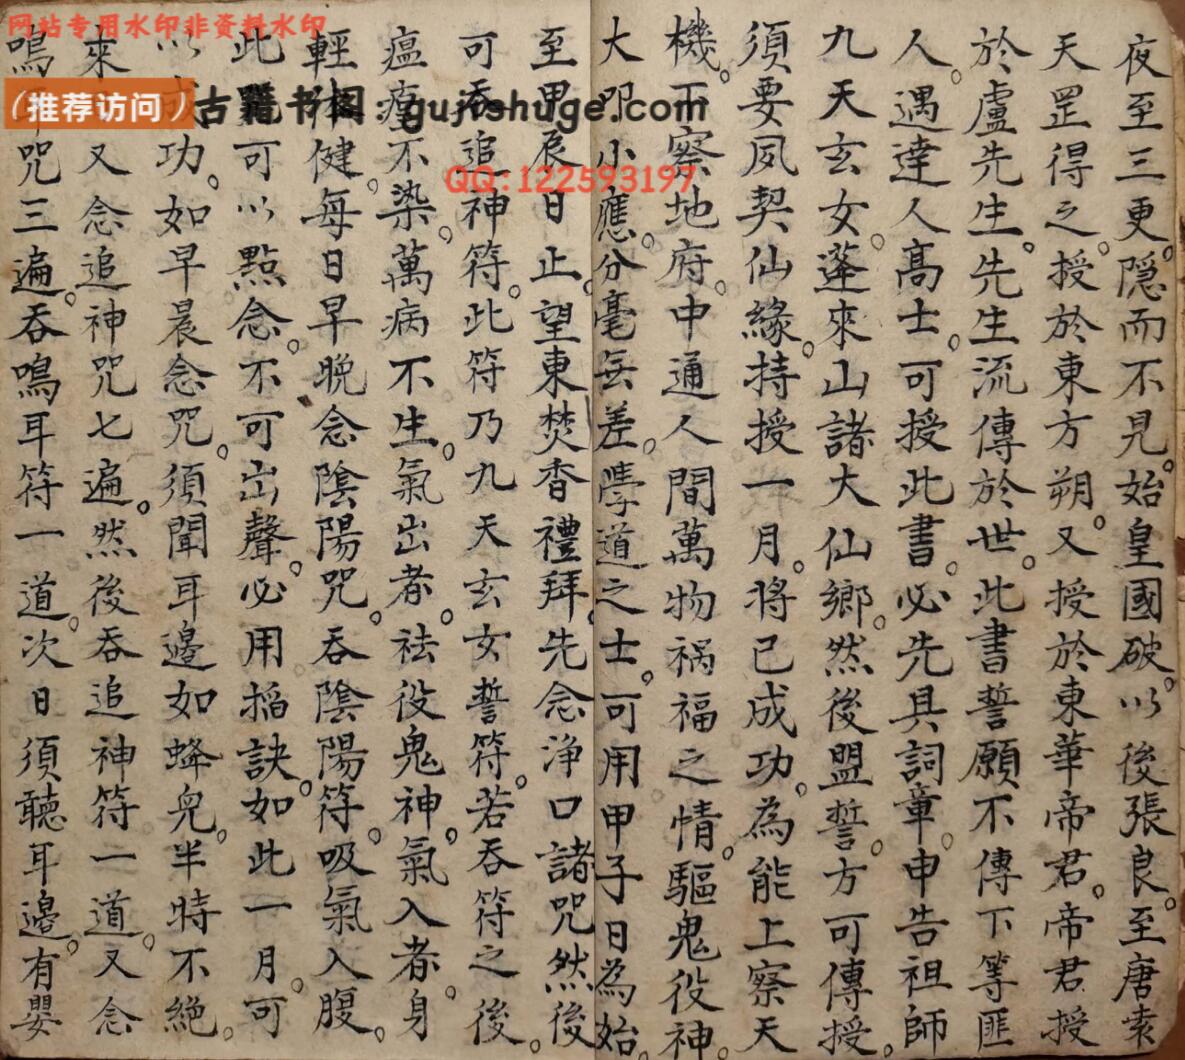 网站专用水印非资料水印
(推荐访问) 古籍书阁：gujishuge.com
QQ:122593197
夜至三更。隐而不見。始皇國破。以後張良。至唐袁
天罡得之。授於東方朔。又授於東華帝君。帝君授
於盧先生。先生流傳於世。此書誓願不傳下等匪
人。遇達人髙士。可授此書。必先具詞章。申告祖師
九天玄女。蓬來山諸大仙鄉。然後盟誓。方可傳授。
須要夙契仙緣。持授一月。將已成功。為能上察天
機。下察地府。中通人間萬物禍福之情。驅鬼役神。
大叩小應。分毫無差。學道之士。可用甲子日為始。
至甲辰日止。望東焚香禮拜。先念浄口諸咒。然後
可吞追神符。此符乃九天玄女誓符。若吞符之後。
瘟㾮不染。萬病不生。氣出者。祛役鬼神。氣入者。身
輕体健。每日早晚念陰陽咒。吞陰陽符。吸氣入腹。
此咒可以點念。不可出聲。必用搯訣。如此一月。可
以成功。如早晨念咒。須聞耳邊如蜂皃。半時不絶。
來又念追神咒七遍。然後吞追神符一道。又念
鳴耳咒三遍。吞鳴耳符一道。次日須聽耳邊。有嬰